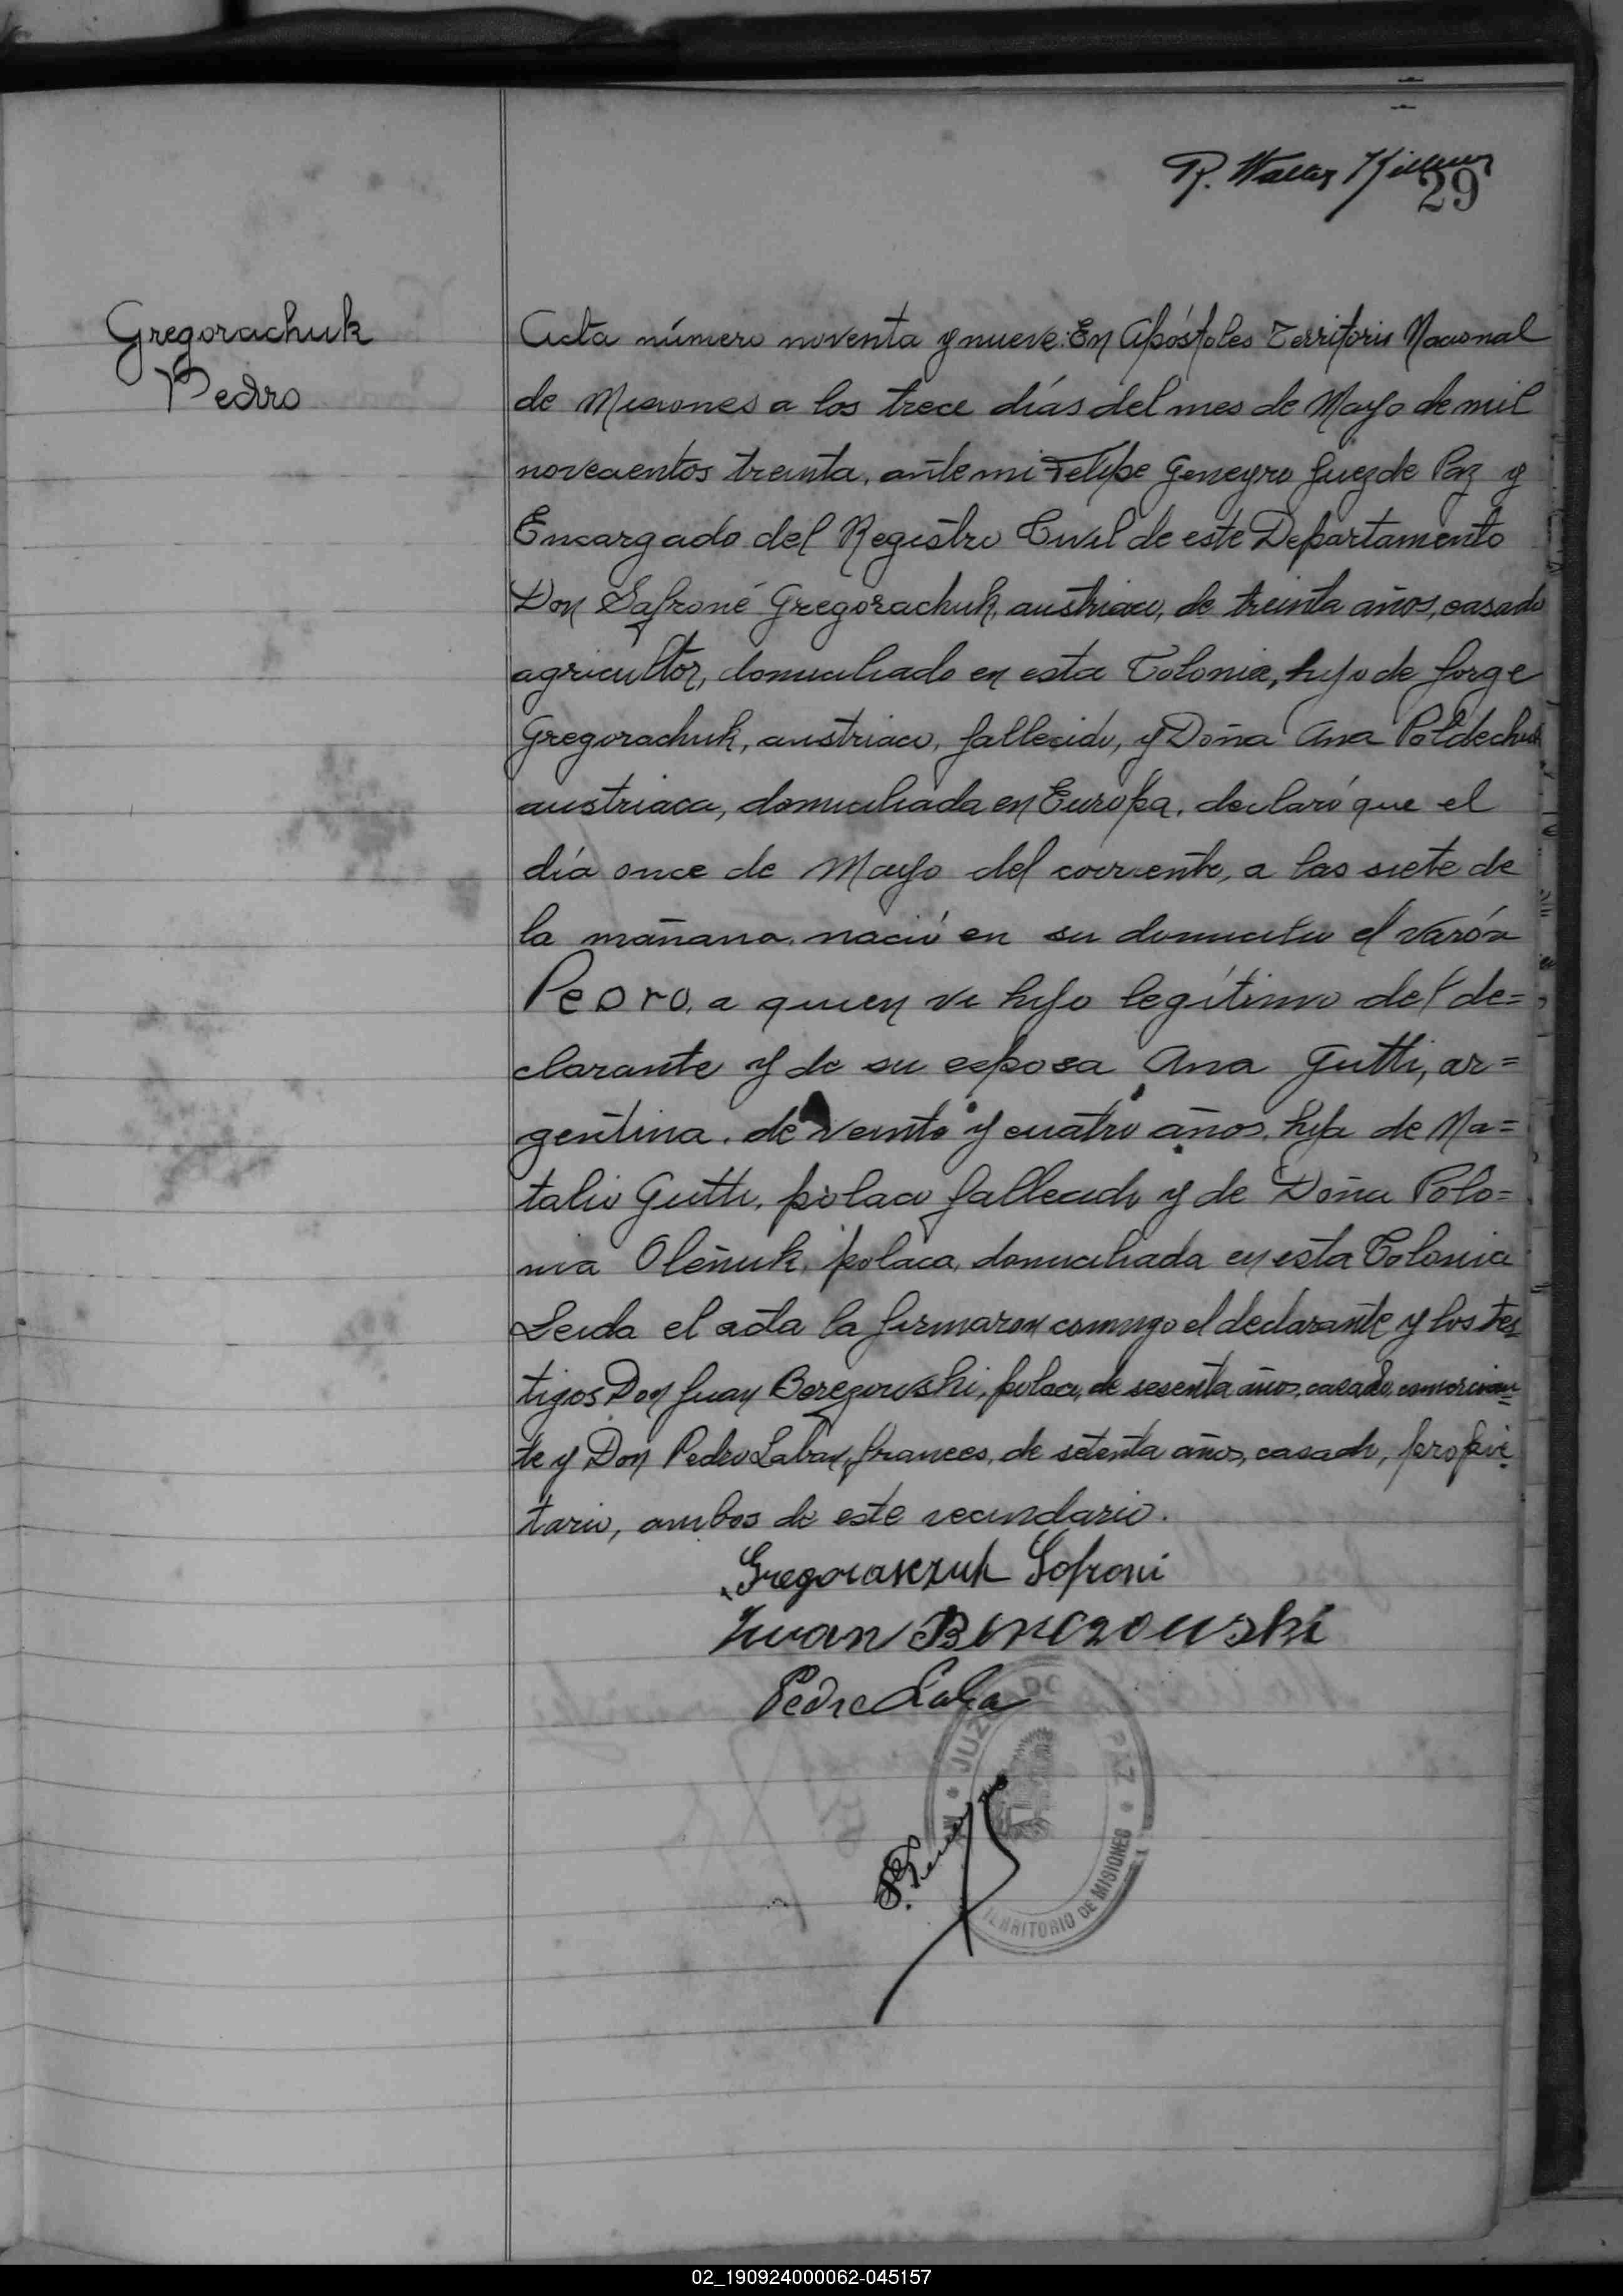 R. Walter
29
Gregorachuk
Pedro
Acta número noventa y nueve: En Apóstoles Territorio Nacional
de Misiones a los trece días del mes de Mayo de mil
novecientos treinta, ante mi Felipe Geneyro Juez de Paz y
Encargado del Registro Civil de este Departamento
Don Safroné Gregorachuk, austriaco, de treinta años, casado
agricultor, domiciliado en esta Colonia, hijo de Jorge
Gregorachuk, austriaco, fallecido, y Doña Ana Poldechuk
austriaca, domiciliada en Europa, declaró que el
día once de Mayo del corriente, a las siete de
la mañana, nació en su domicilio el varón
Pedro, a quien vi hijo legítimo del de=
clarante y de su esposa Ana Gutti, ar=
gentina, de veinte y cuatro años, hija de Na=
talio Gutti, polaco fallecido y de Doña Polo=
nia Oleñuk, polaca, domiciliada en esta Colonia
Leida el acta la firmaron conmigo el declarante y los tes
tigos Don Juan Berezowski, polaco, de sesenta años, casado, comercian=
te y Don Pedro Labax, frances, de setenta años, casado, propie
tario, ambos de este vecindario.
Gregorasczuk Sofroni
Iwan
Pedro
JUZGADO DE PAZ
TERRITORIO DE MISIONES
02_190924000062-045157